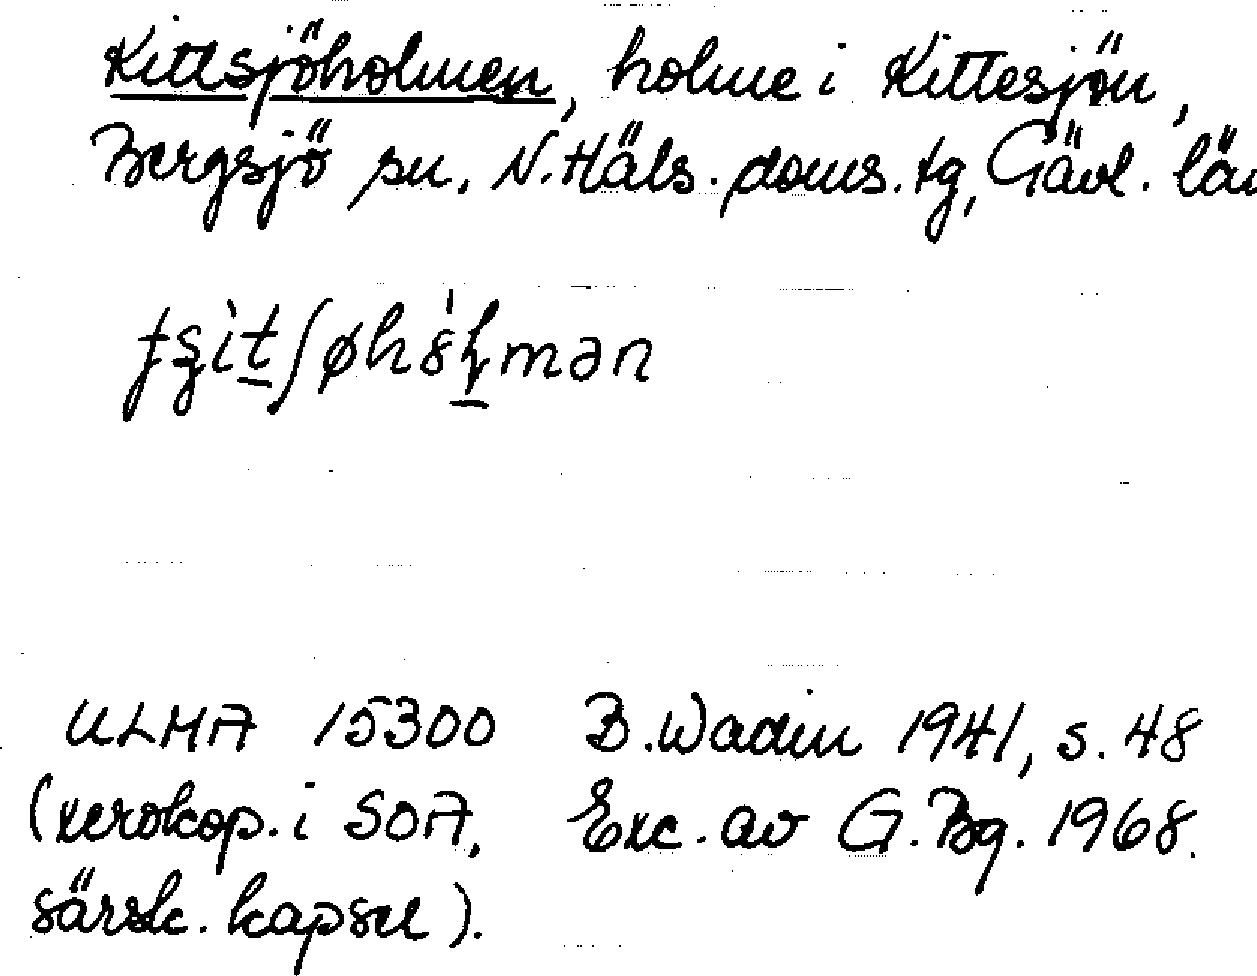 Kittsjöholmen, holme i Kittesjön,
Bergsjö sn, N. Häls. doms. tg, Gävl. län
ULMA 15300 B. Wadin 1941, s. 48
(xerokop. i SOA, Exc. av G. Bg. 1968.
särsk. kapsel).